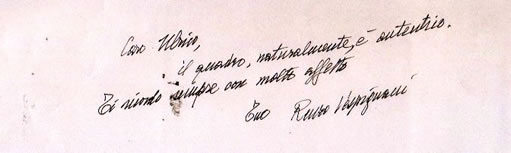 Caro Ulrico,
il quadro, naturalmente, è autentico.
Ti ricordo sempre con molto affetto
Tuo Renzo Vespignani